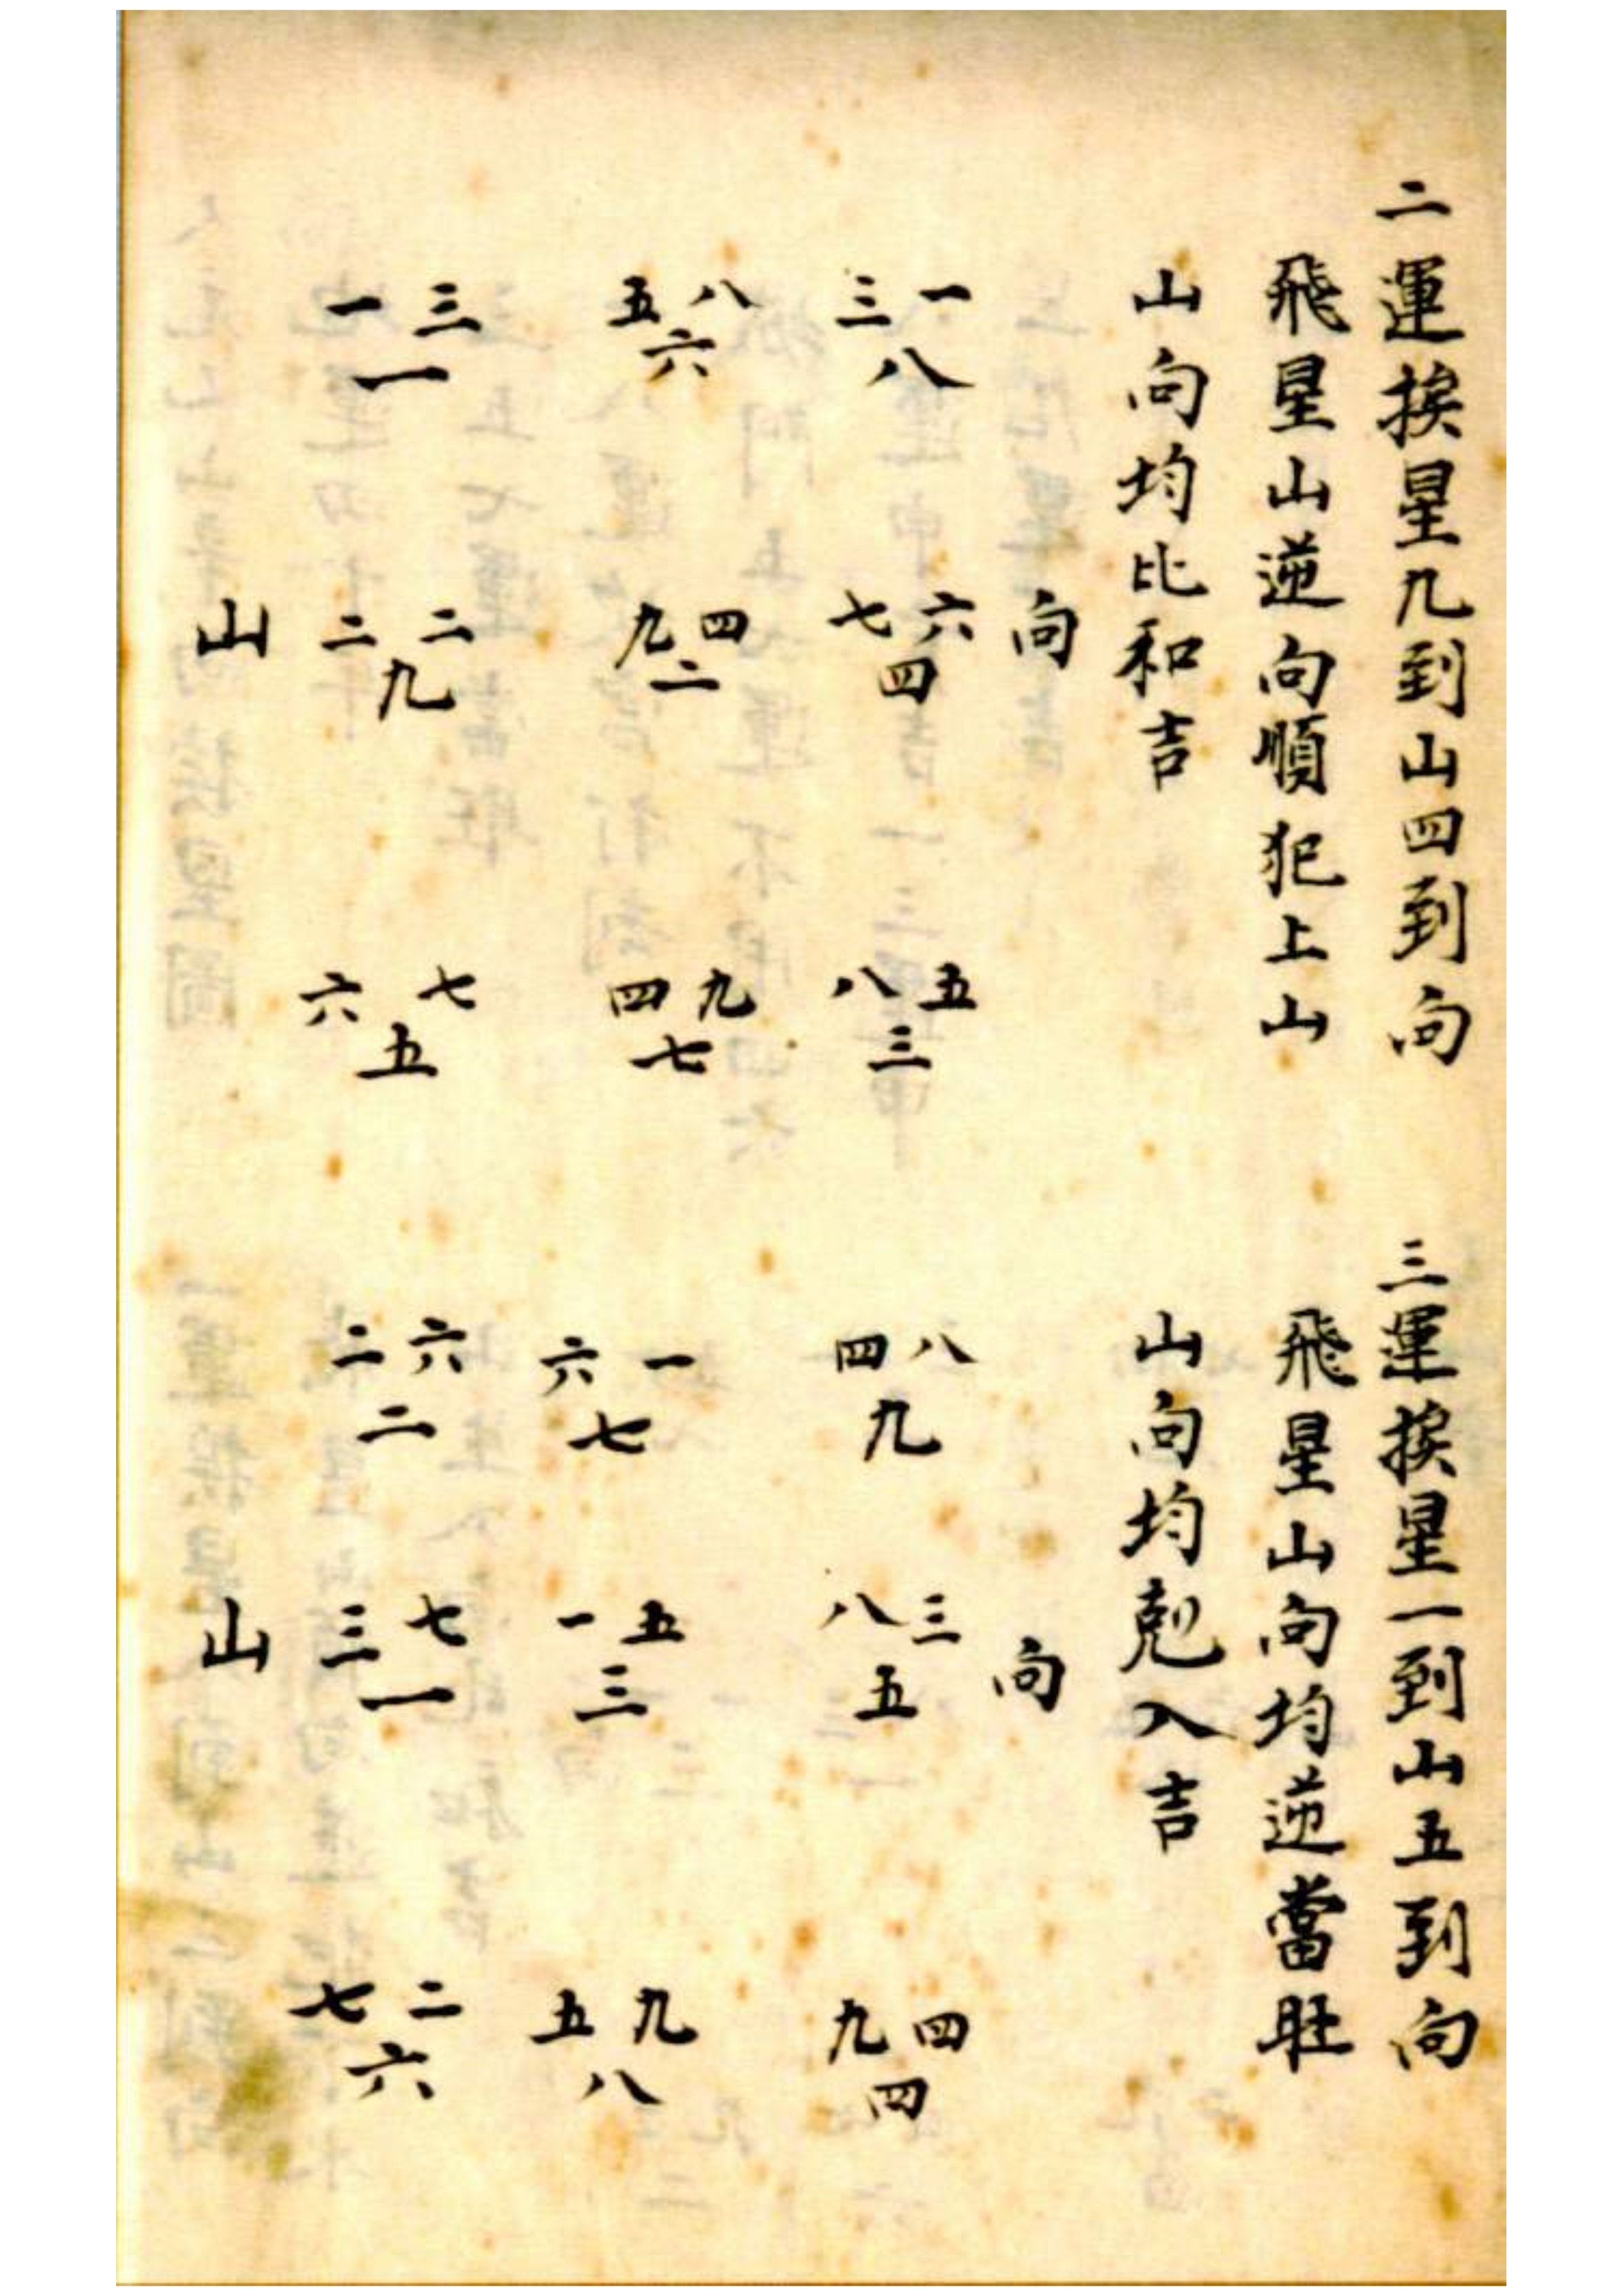 二運挨星九到山四到向
飛星山逆向順犯上山
山向均比和吉
向
三一 八
七六 四
八五 三
五八 六
九四 二
四九 七
一三 一
二二 九
六七 五
山
三運挨星一到山五到向
飛星山向均逆當旺
山向均剋入吉
向
四八 九
八三 五
九四 四
六一 七
一五 三
五九 八
二六 二
三七 一
七二 六
山